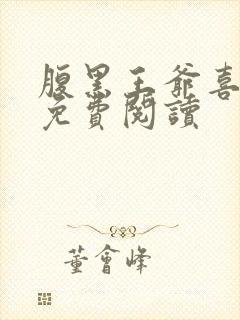 腹黑王爺喜
免費閱讀
董會峰